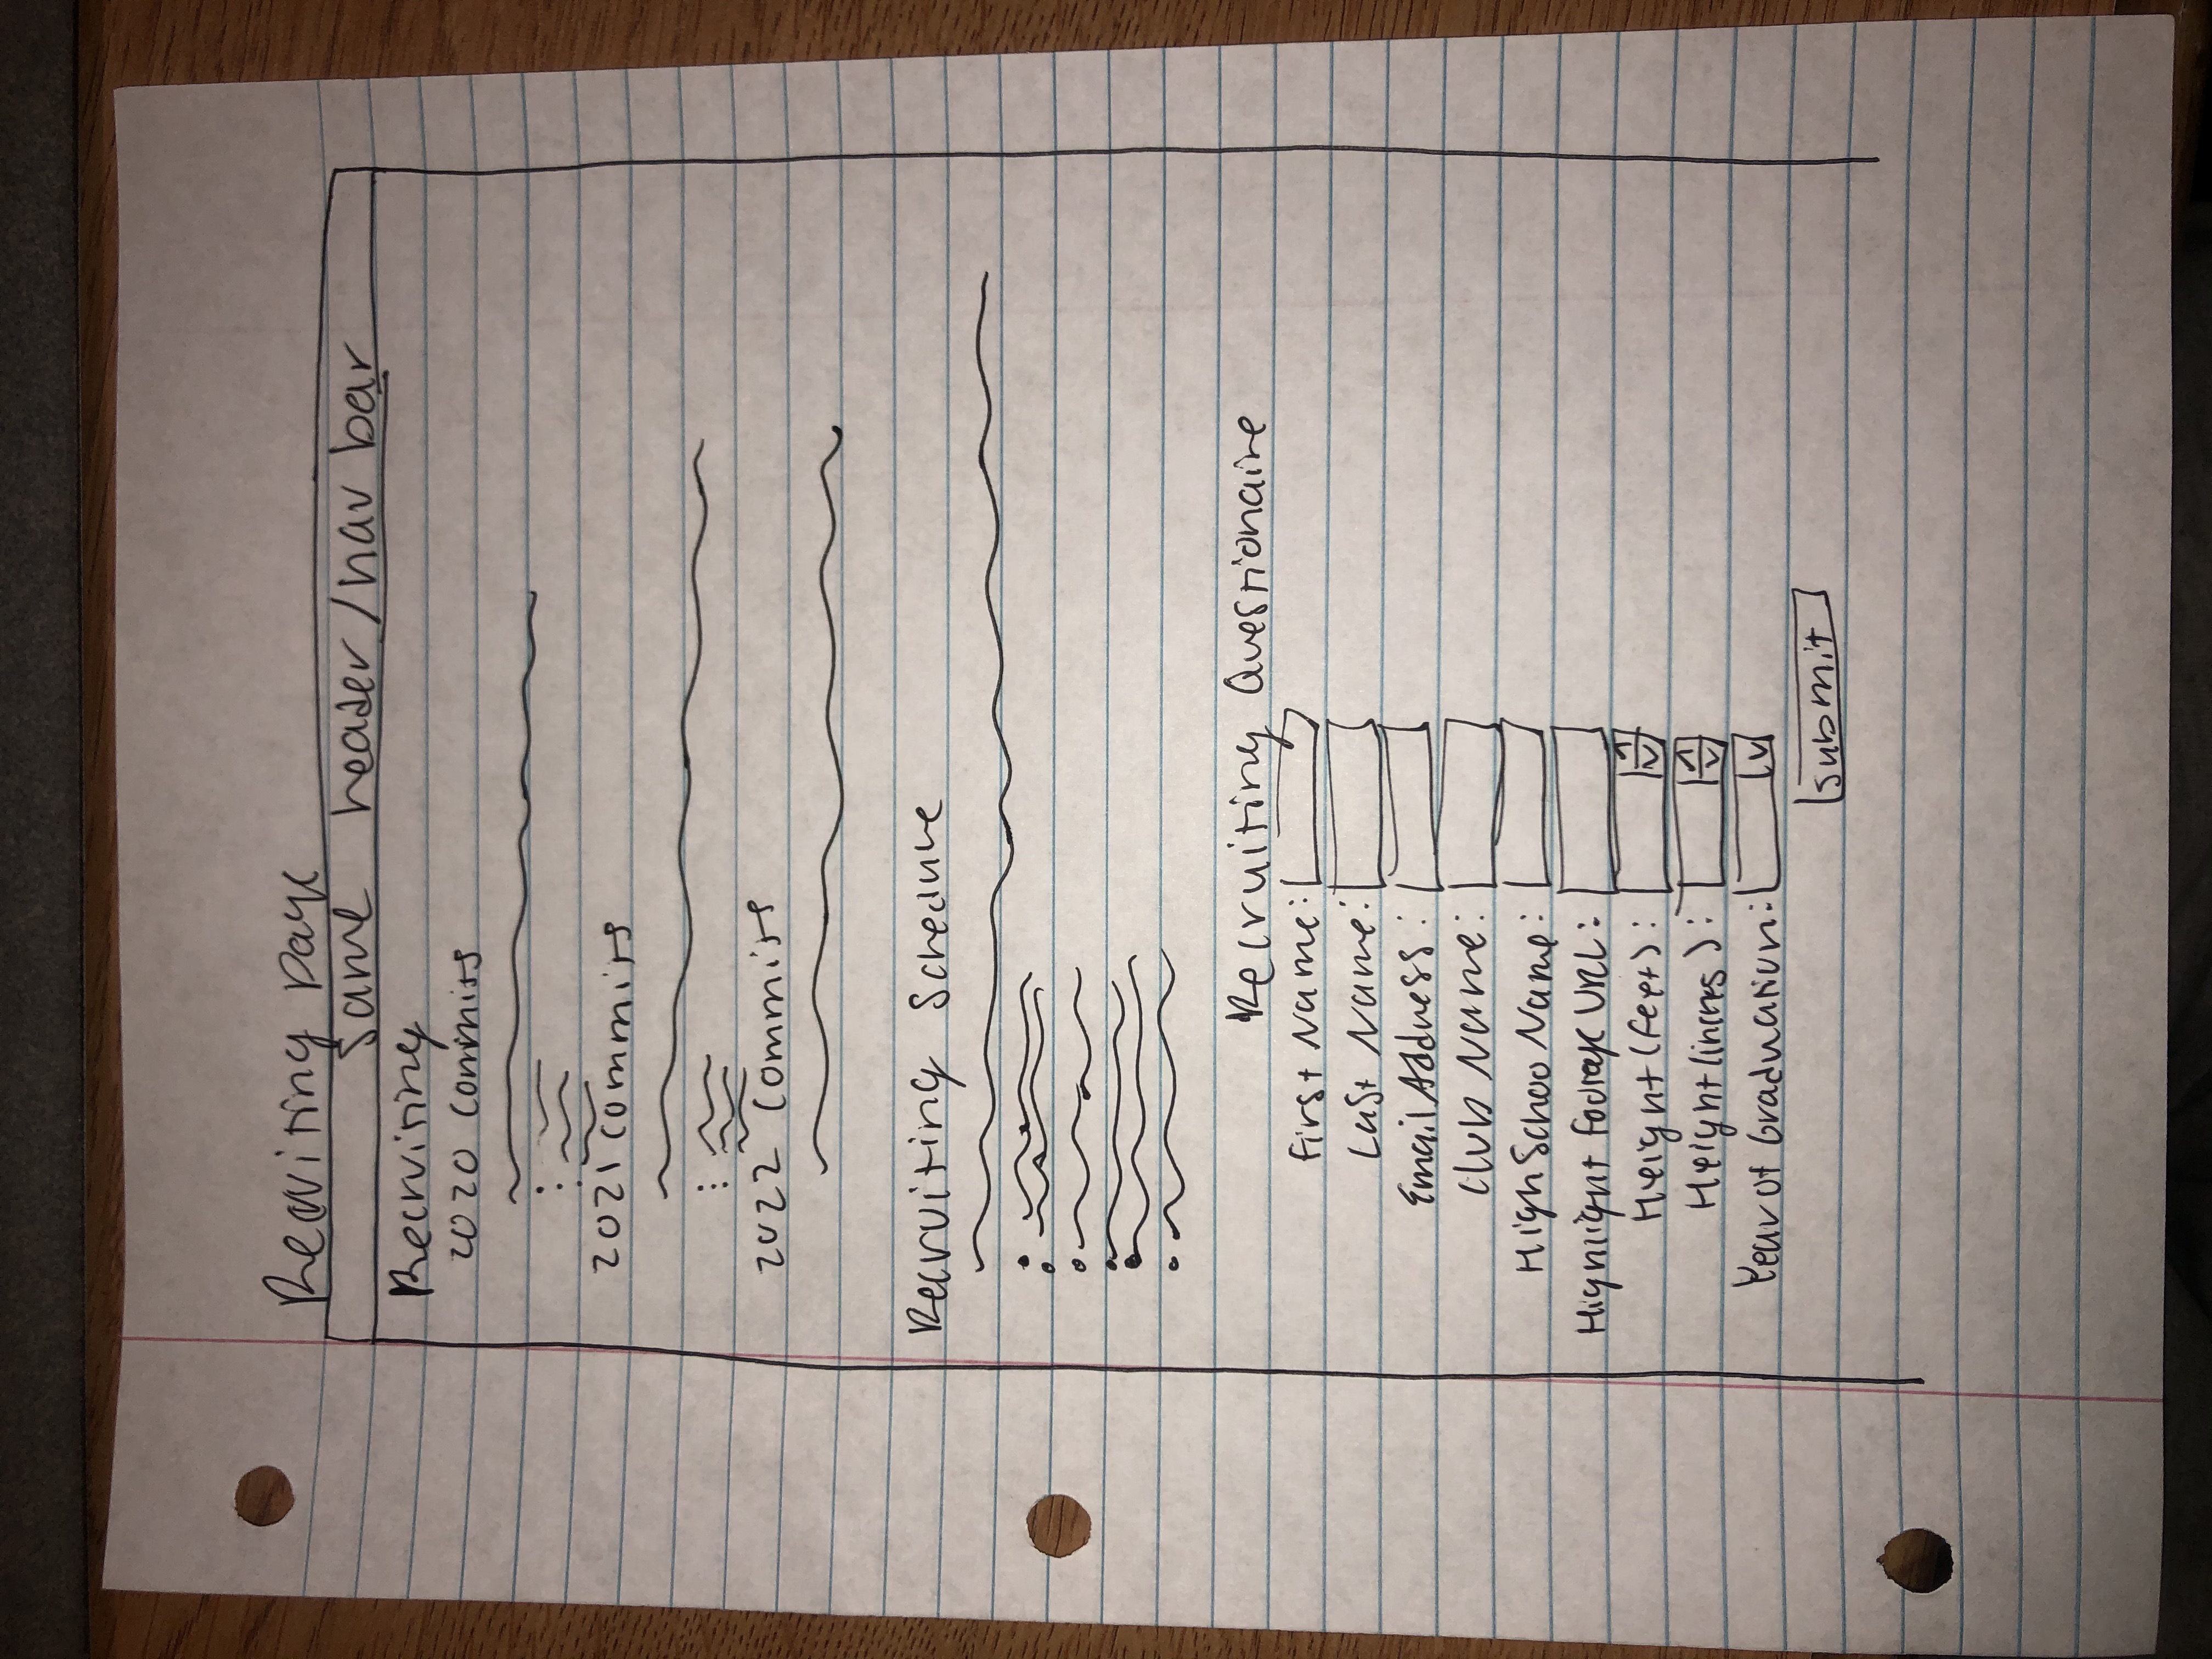 Recruiting page
same header/nav bar
Recruiting
2020 Commits
2021 Commits
2022 Commits
Recruiting Schedule
Recruiting Questionaire
First Name:
Last Name:
Email Address:
Club Name:
High Schoo Name:
Highlight Footage URL:
Height (feet):
Height (inches):
Year of Graduation:
submit